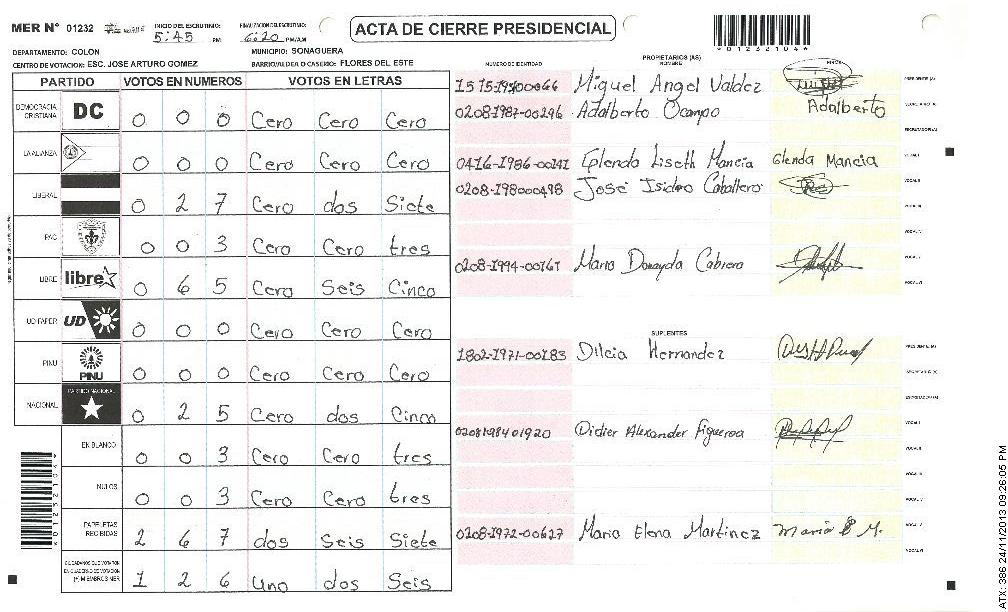 MER Nº 01232
INICIO DEL ESCRUTINIO: 5:45 PM
FINALIZACION DEL ESCRUTINIO: 6:20 PM/AM
ACTA DE CIERRE PRESIDENCIAL
DEPARTAMENTO: COLON
MUNICIPIO: SONAGUERA
CENTRO DE VOTACION: ESC. JOSE ARTURO GOMEZ
BARRIO/ALDEA O CASERIO: FLORES DEL ESTE
NUMERO DE IDENTIDAD
PROPIETARIOS (AS)
NOMBRE
FIRMA
PARTIDO VOTOS EN NUMEROS VOTOS EN LETRAS
DEMOCRACIA CRISTIANA DC 0 0 0 Cero Cero Cero
LA ALIANZA 0 0 0 Cero Cero Cero
LIBERAL 0 2 7 Cero dos Siete
PAC 0 0 3 Cero Cero tres
LIBRE libre 0 6 5 Cero Seis Cinco
UD-FAPER UD 0 0 0 Cero Cero Cero
PINU PINU 0 0 0 Cero Cero Cero
NACIONAL PARTIDO NACIONAL 0 2 5 Cero dos Cinco
EN BLANCO 0 0 3 Cero Cero tres
NULOS 0 0 3 Cero Cero tres
PAPELETAS RECIBIDAS 2 6 7 dos Seis Siete
CIUDADANOS QUE VOTARON EN CUADERNO DE VOTACION (+) MIEMBROS MER 1 2 6 Uno dos Seis
Miguel Angel Valdez PRESIDENTE (A)
0208-1987-00296 Adalberto Ocampo Adalberto SECRETARIO (A)
ESCRUTADOR (A)
0416-1986-00141 Glenda Liseth Mancia Glenda Mancia VOCAL I
0208-198000498 José Isidro Caballero VOCAL II
VOCAL III
0208-1994-00161 Maria Donayda Cabrera VOCAL V
VOCAL VI
SUPLENTES
1802-1971-00183 Dilcia Hernandez PRESIDENTE (A)
SECRETARIO (A)
ESCRUTADOR (A)
0208198401920 Didier Alexander Figueroa VOCAL I
VOCAL II
VOCAL III
VOCAL IV
0208-1972-00627 Maria Elena Martinez Maria E M. VOCAL V
VOCAL VI
ATX: 386 24/11/2013 09:26:05 PM